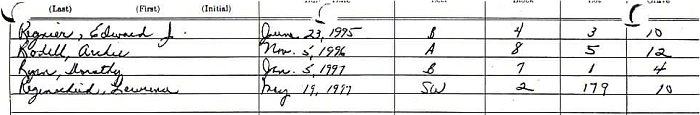 (Last) (First) (Initial)
Regnier, Edward J. June 23, 1995 B 4 3 10
Rodell, Archie Nov. 5, 1996 A 8 5 12
Ryan, Dorothy Jan. 5, 1997 B 7 1 4
May 19, 1997 SW 2 179 10